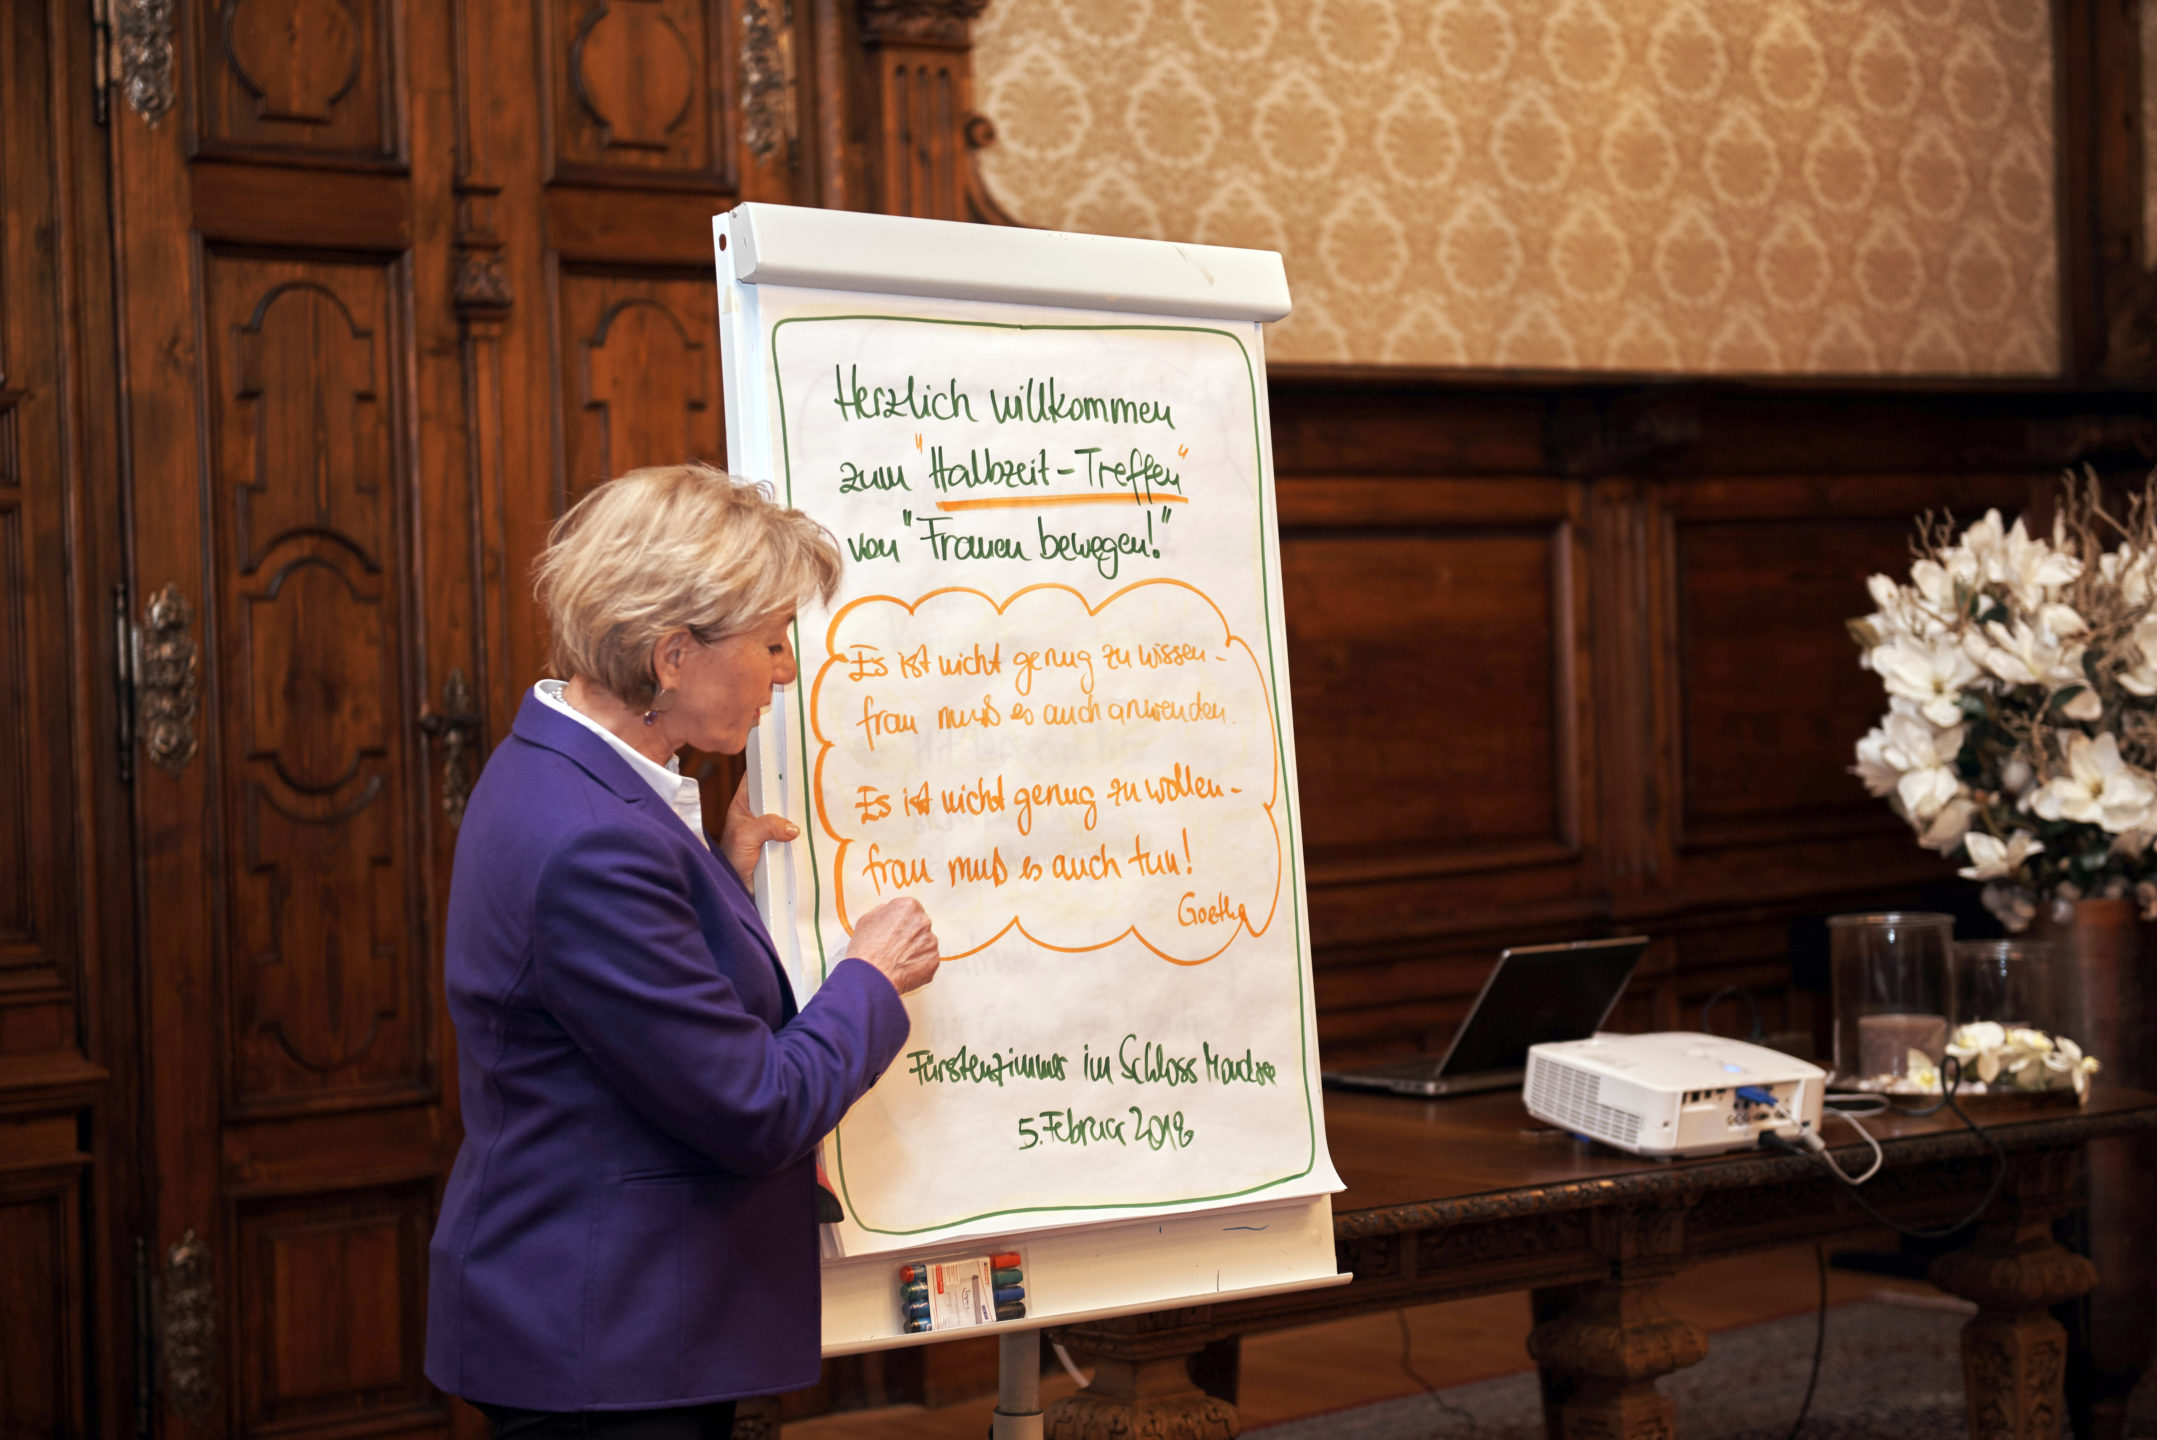 Herzlich willkommen
zum "Halbzeit-Treffen"
von "Frauen bewegen!"
Es ist nicht genug zu wissen -
frau muß es auch anwenden.
Es ist nicht genug zu wollen -
frau muß es auch tun!
Goethe
Fürstenzimmer im Schloss Mondsee
5. Februar 2018